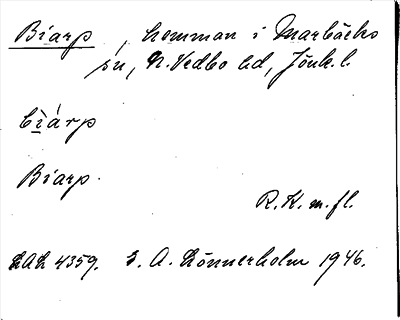 Biarp, hemman i Marbäcks
sn, N. Vedbo hd, Jönk. l.
bìárp
Biarp.
R. K. m. fl.
LAL 4359. E. A. Lönnerholm 1946.